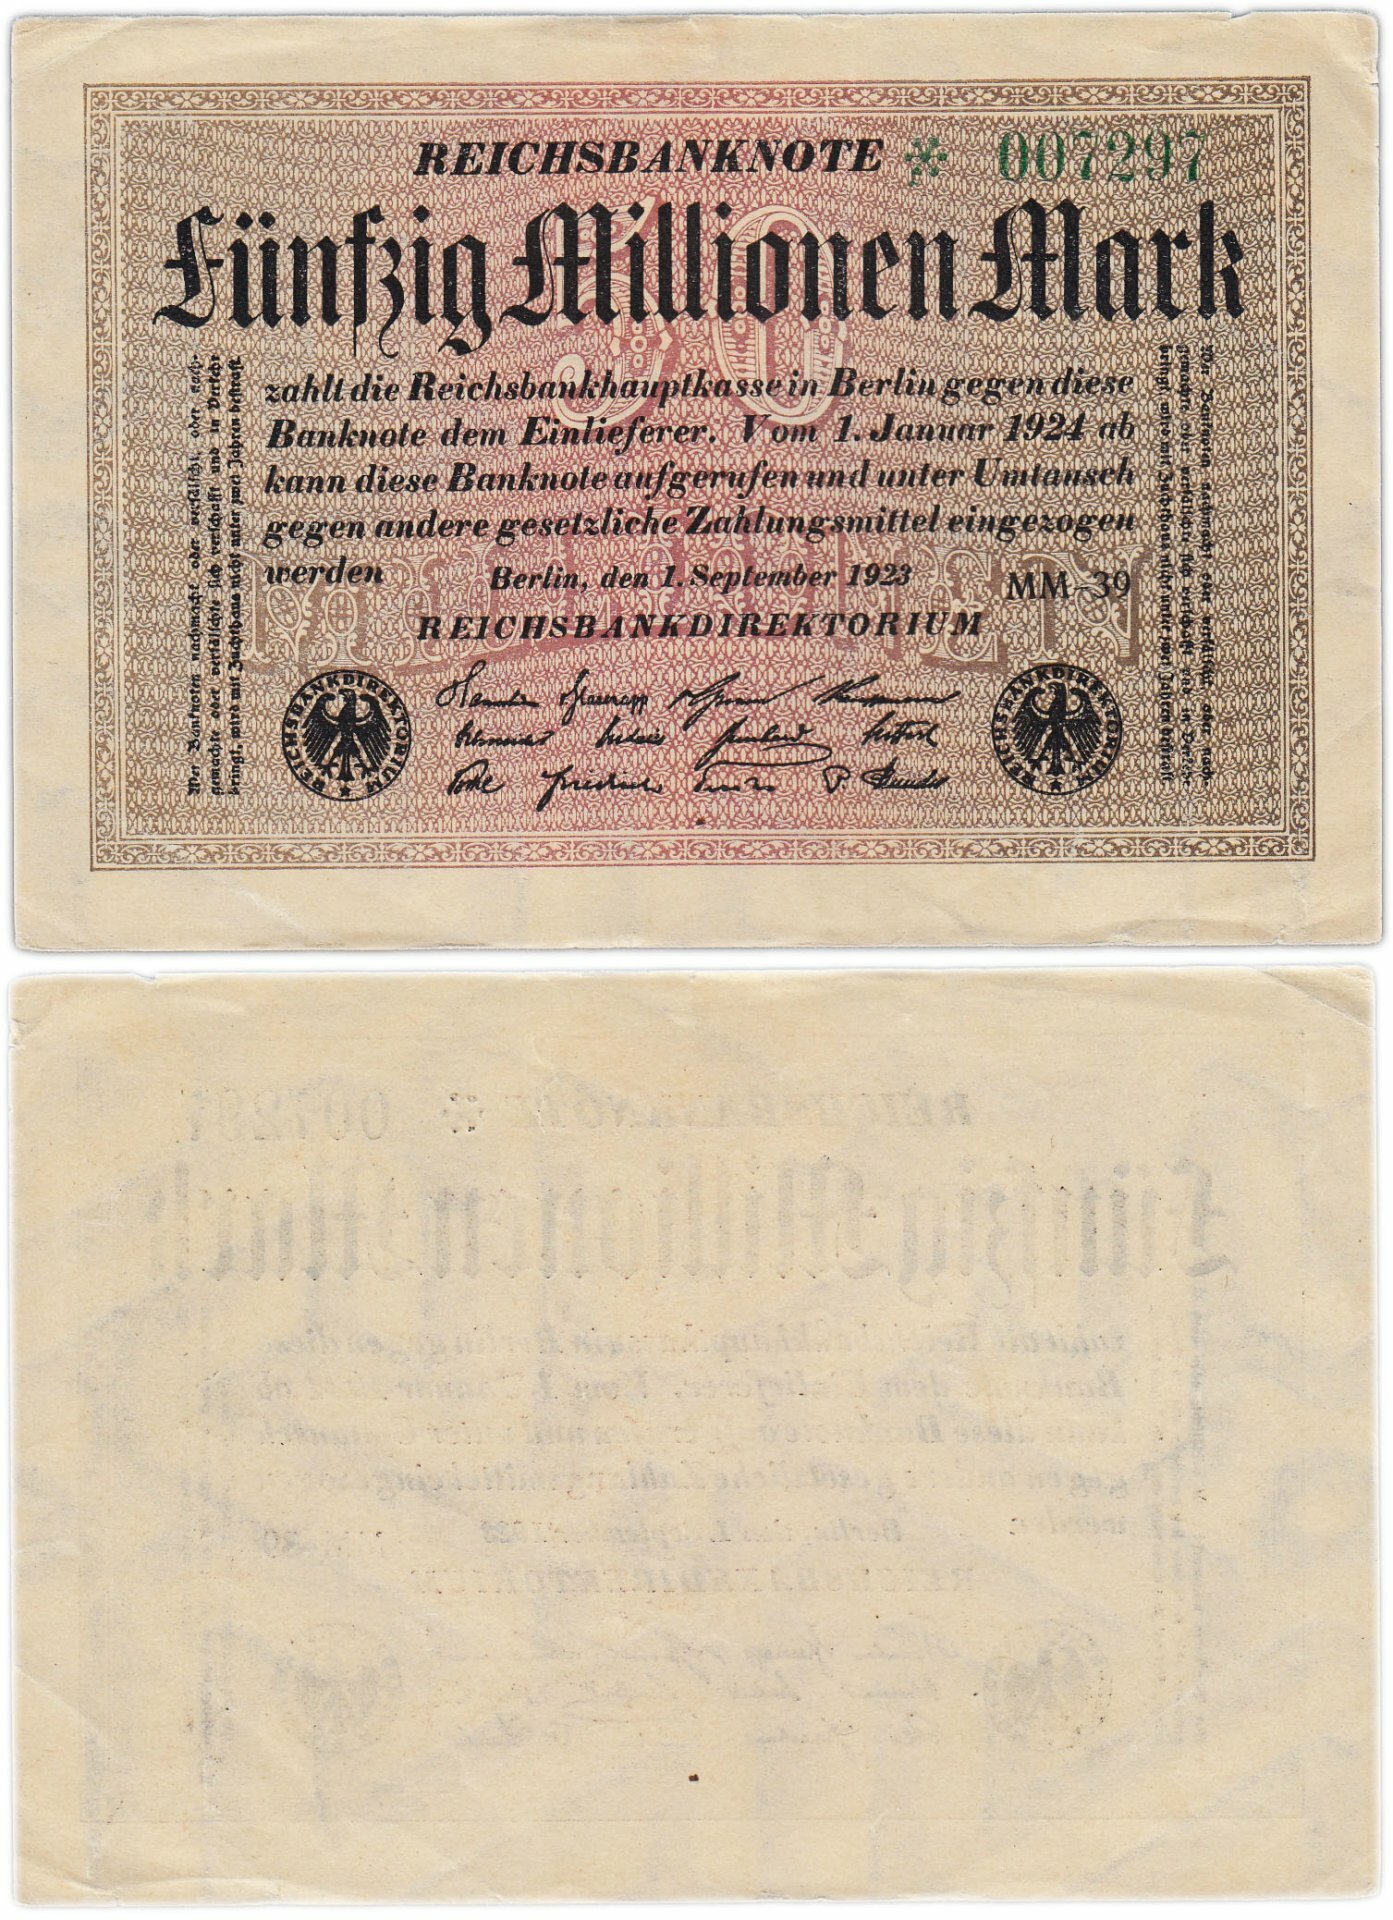 REICHSBANKNOTE * 007297
Fünfzig Millionen Mark
zahlt die Reichsbankhauptkasse in Berlin gegen diese
Banknote dem Einlieferer. Vom 1. Januar 1924 ab
kann diese Banknote aufgerufen und unter Umtausch
gegen andere gesetzliche Zahlungsmittel eingezogen
werden
Berlin, den 1. September 1923
MM-39
REICHSBANKDIREKTORIUM
Wer Banknoten nachmacht oder verfälscht, oder nach-
gemachte oder verfälschte sich verschafft und in Verkehr
bringt, wird mit Zuchthaus nicht unter zwei Jahren bestraft.
Wer Banknoten nachmacht oder verfälscht, oder nach-
gemachte oder verfälschte sich verschafft und in Verkehr
bringt, wird mit Zuchthaus nicht unter zwei Jahren bestraft
50
MILLIONEN
REICHSBANKDIREKTORIUM
REICHSBANKDIREKTORIUM